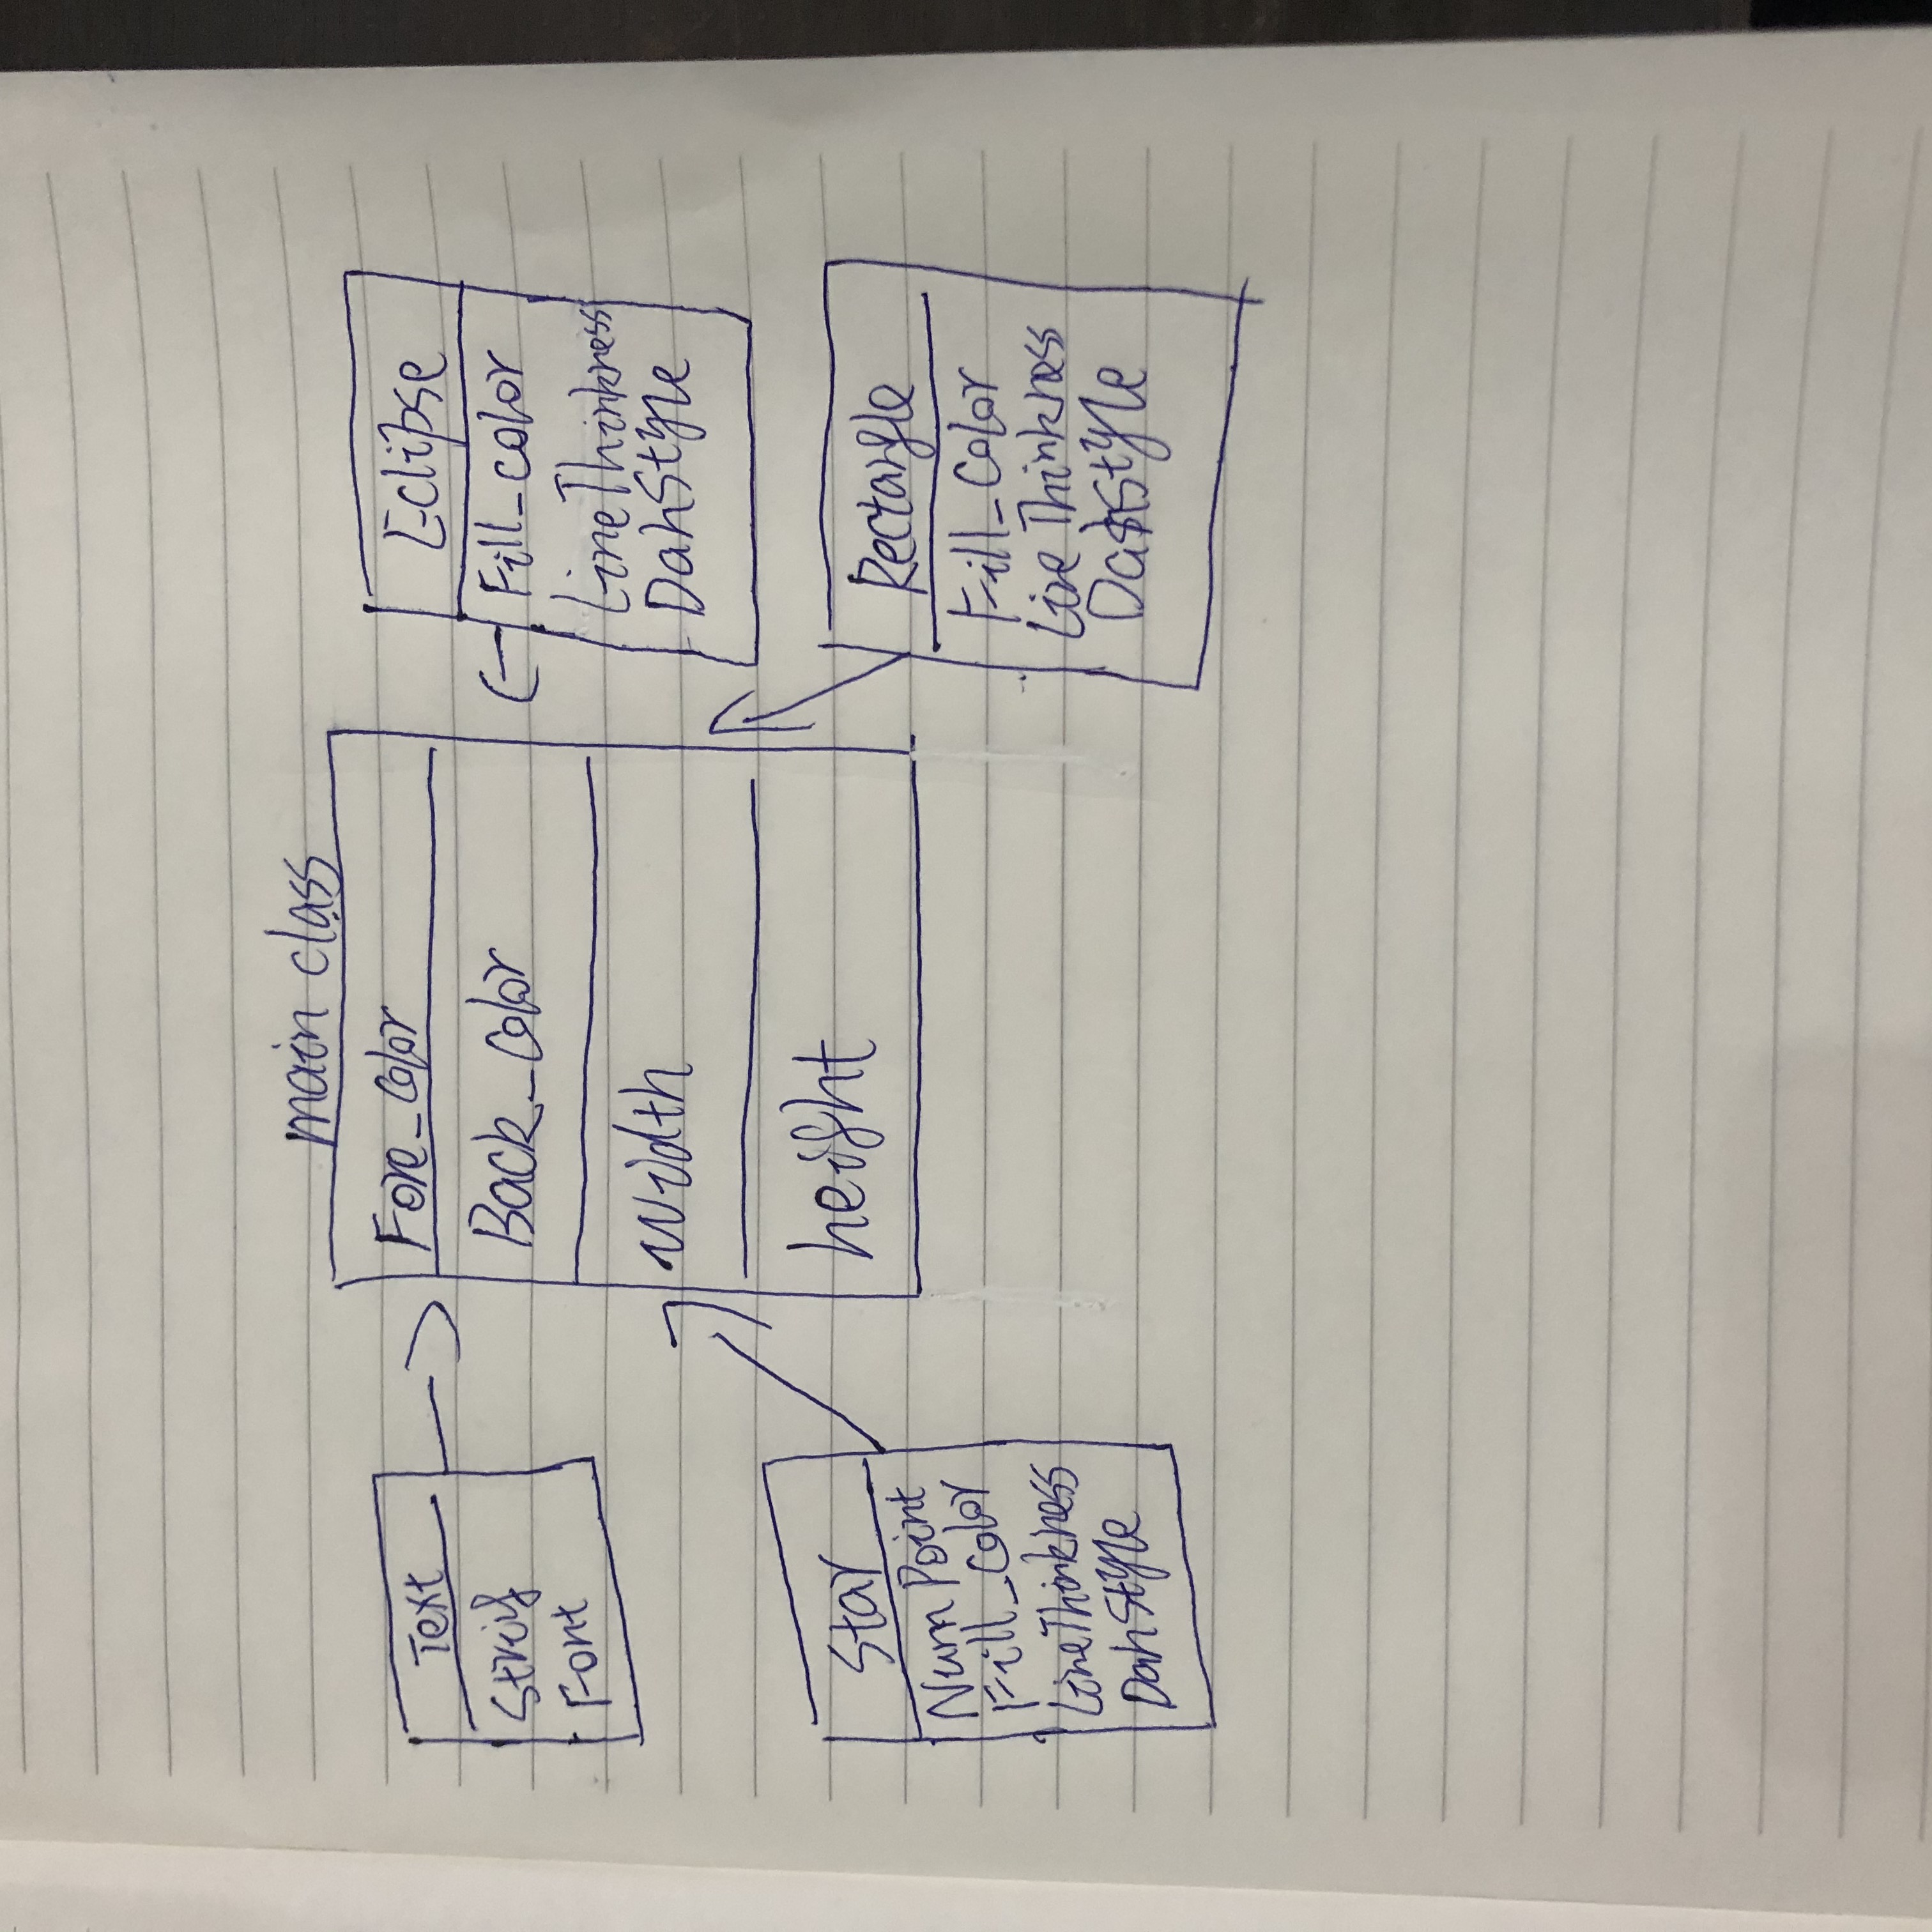 main class
Fore_Color
Back_Color
Width
height
Text
String
Font
Star
Num Point
Fill_Color
LineThinkness
DahStyle
Eclipse
Fill_color
LineThinkness
DahStyle
Rectangle
Fill_Color
Line Thinkness
DashStyle